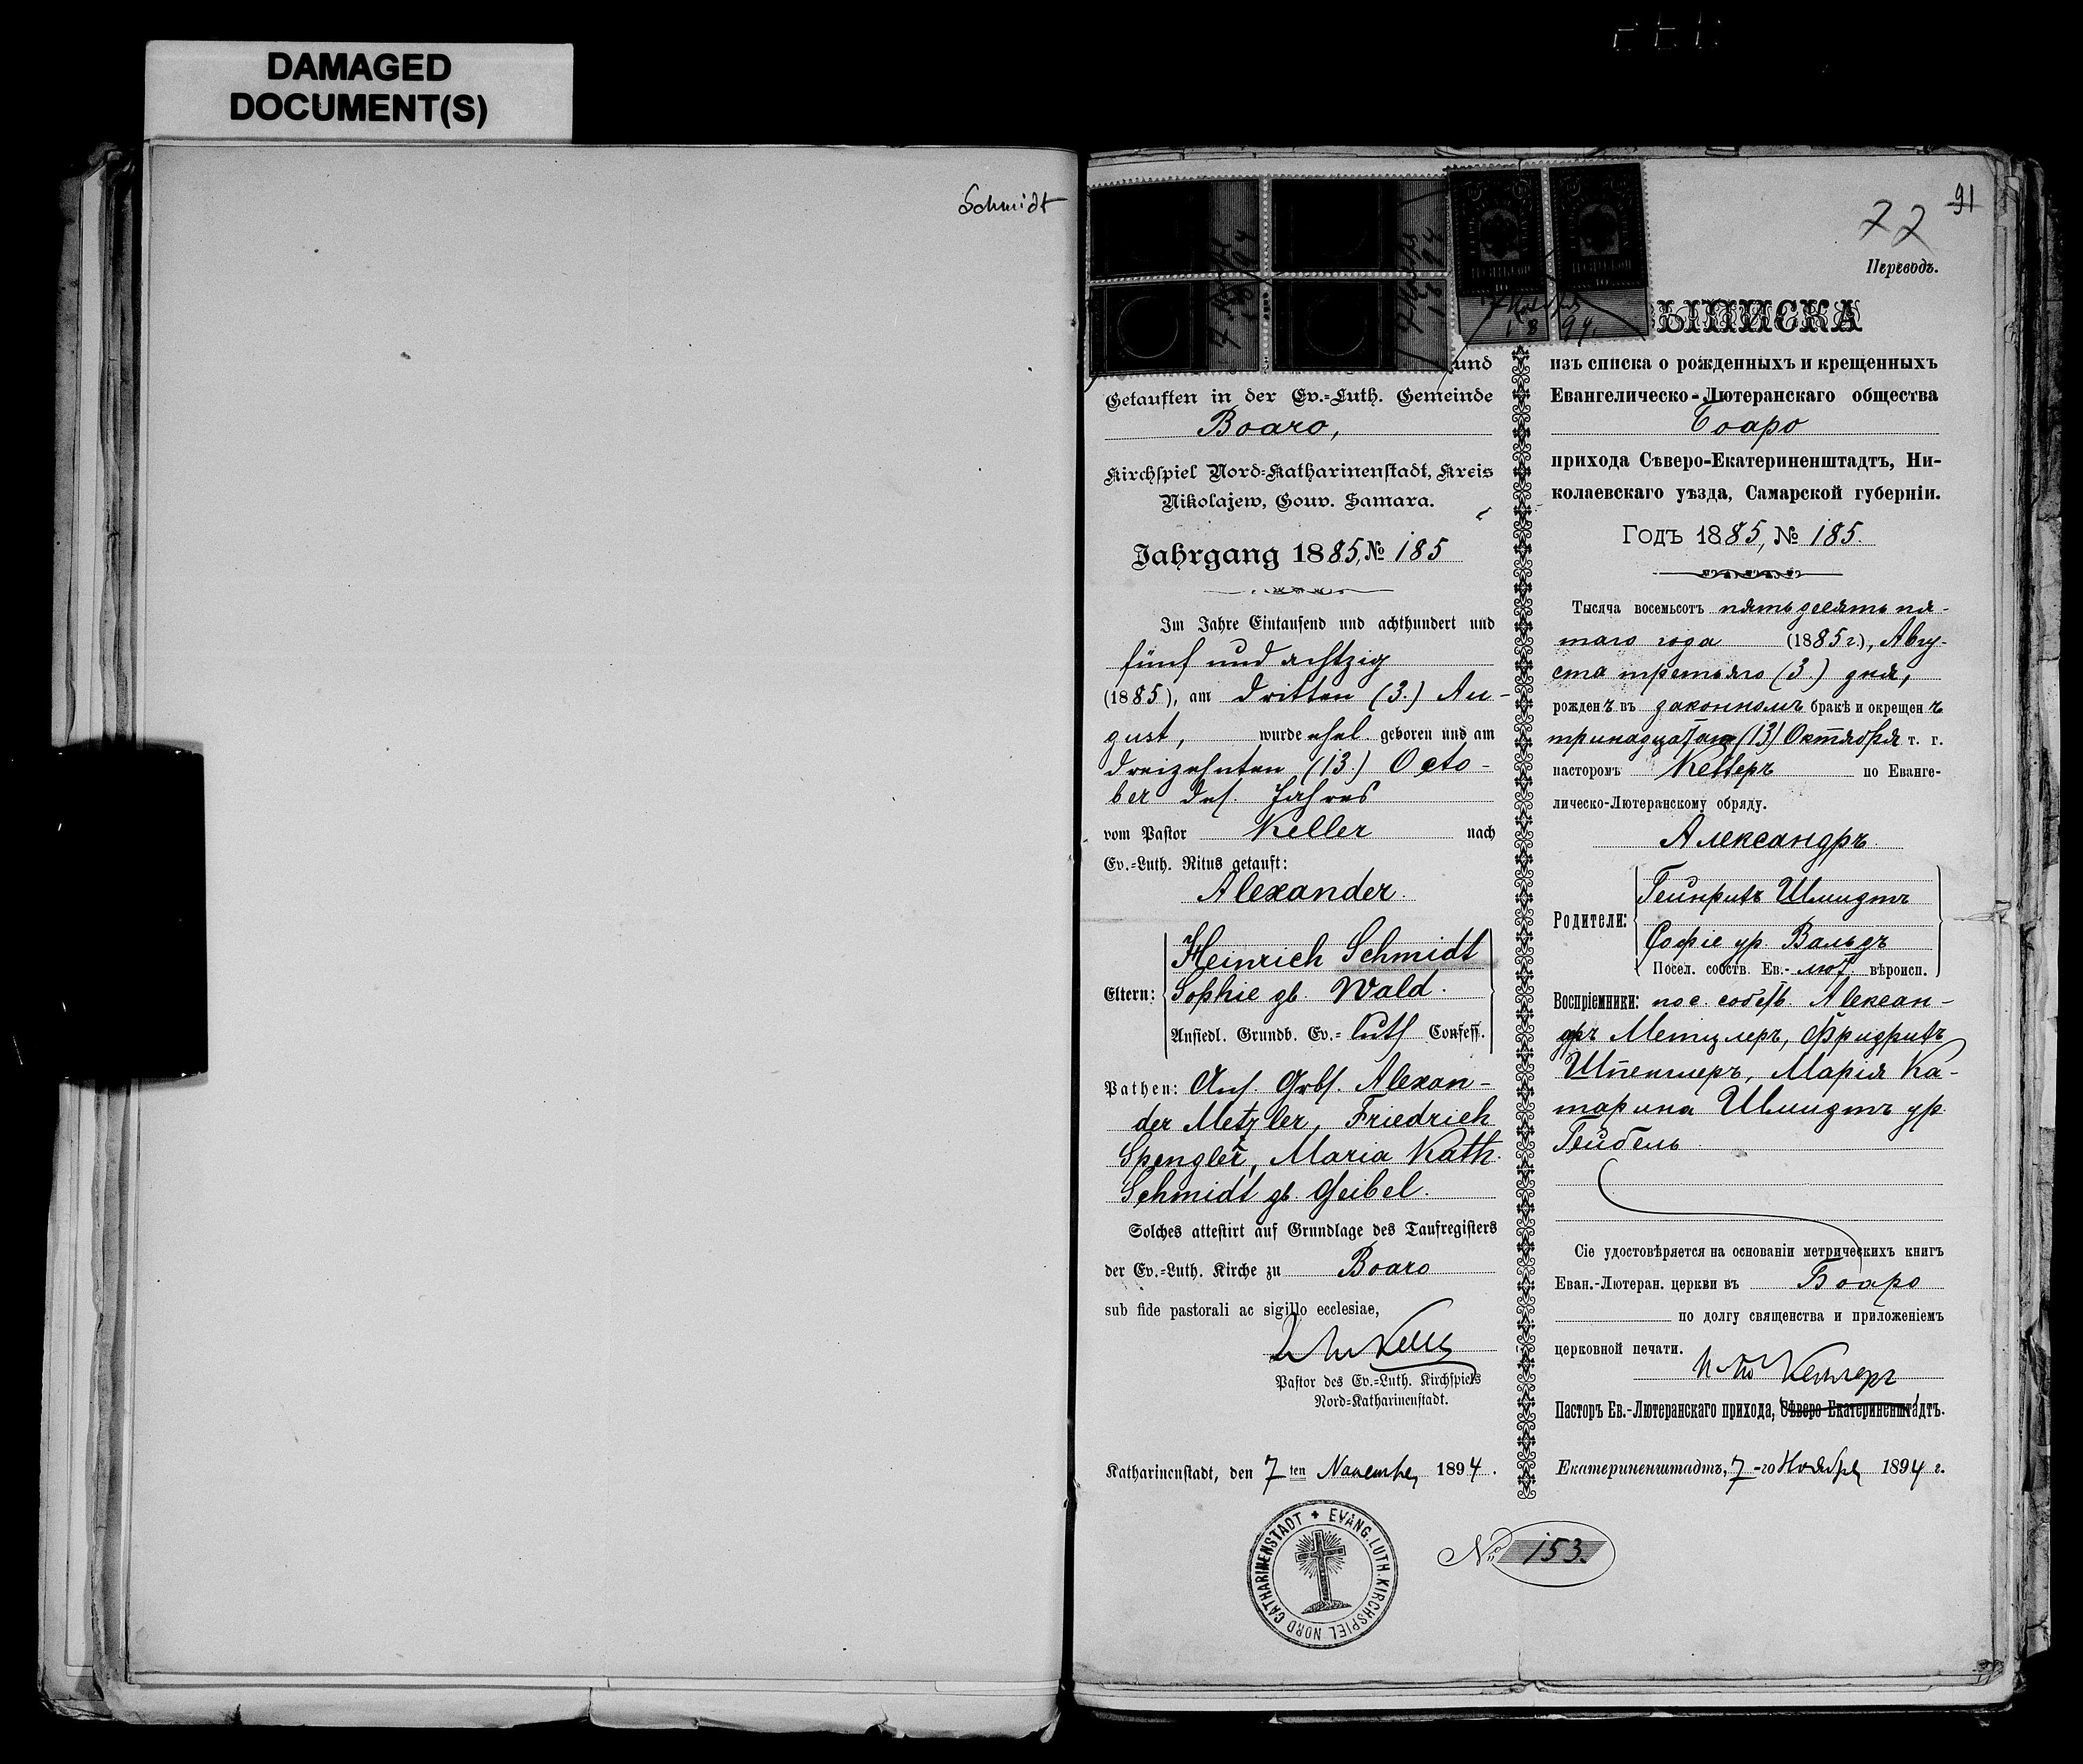 DAMAGED
DOCUMENT(S)
Schmidt
91
72
Переводъ.
und
Getauften in der Ev.=Luth. Gemeinde
Boaro,
Kirchspiel Nord=Katharinenstadt, Kreis
Nikolajew, Gouv. Samara.
Jahrgang 1885, № 185
Im Jahre Eintausend und achthundert und
fünf und achtzig
(1885), am dritten (3.) Au-
gust, wurde ehel. geboren und am
dreizehnten (13.) Octo-
ber des. Jahres
vom Pastor Keller nach
Ev.=Luth. Ritus getauft:
Alexander.
Eltern:
Heinrich Schmidt
Sophie gb. Wald.
Ansiedl. Grundb. Ev.= luth Confess.
Pathen: Ans. Grbs. Alexan-
der Metzler, Friedrich
Spengler, Maria Kath.
Schmidt gb. Geibel.
Solches attestirt auf Grundlage des Taufregisters
der Ev.=Luth. Kirche zu Boaro
sub fide pastorali ac sigillo ecclesiae,
Pastor des Ev.=Luth. Kirchspiels
Nord=Katharinenstadt.
Katharinenstadt, den 7 ten November 1894.
EVANG. LUTH. KIRCHSPIEL NORD CATHARINENSTADT
ЫПИСКА
изъ списка о рожденныхъ и крещенныхъ
Евангелическо-Лютеранскаго общества
Боаро
прихода Сѣверо-Екатериненштадтъ, Ни-
колаевскаго уѣзда, Самарской губерніи.
Годъ 1885, № 185.
Тысяча восемьсотъ пятьдесять пя-
таго года (1885 г.), Авгу-
ста третьяго (3.) дня,
рожденъ въ законномъ бракѣ и окрещенъ
тринадцатаго (13) Октября т. г.
пасторомъ Келлеръ по Еванге-
лическо-Лютеранскому обряду.
Александръ.
Родители:
Гейнрихъ Шмидтъ
Софіе ур. Вальдъ
Посел. собств. Ев.- лют. вѣроисп.
Воспріемники: пос. собств. Алексан-
дръ Метцлеръ, Фридрихъ
Шпенглеръ, Марія Ка-
тарина Шмидтъ ур.
Гейбель
Сіе удостовѣряется на основаніи метрическихъ книгъ
Еван.-Лютеран. церкви въ Боаро
по долгу священства и приложеніемъ
церковной печати.
Келлеръ
Пасторъ Ев.-Лютеранскаго прихода, Сѣверо-Екатериненштадтъ.
Екатериненштадтъ, 7-го Ноября 1894 г.
№ 153.